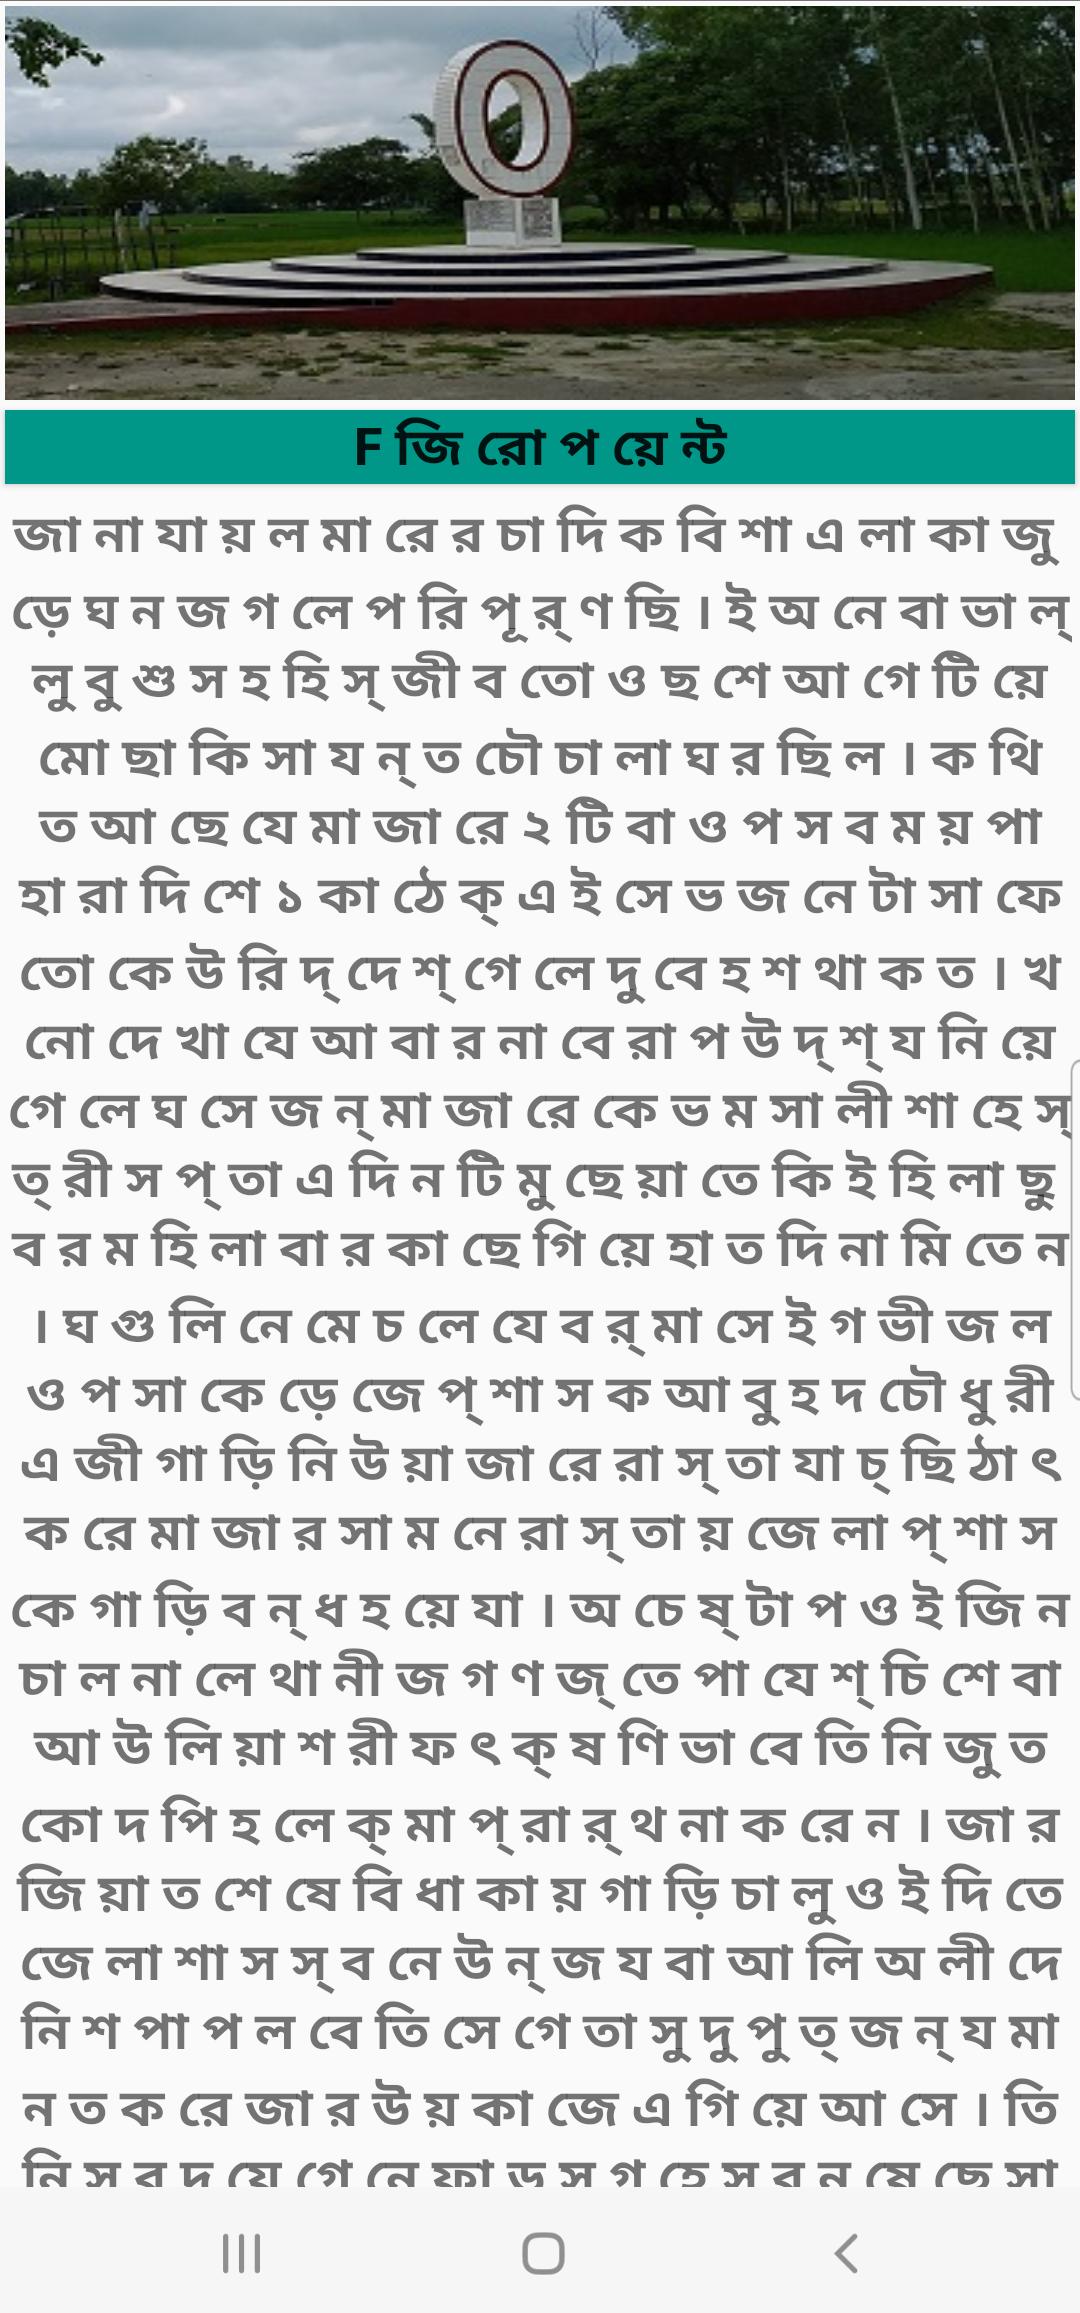 0
F জি রো প য়ে ন্ট
জা না যা য় ল মা রে র চা দি ক বি শা এ লা কা জু
ড়ে ঘ ন জ গ লে প রি পূ র্ ণ ছি । ই অ নে বা ভা ল্
লু বু শু স হ হি স্ জী ব তো ও ছ শে আ গে টি য়ে
মো ছা কি সা য ন্ ত চৌ চা লা ঘ র ছি ল । ক থি
ত আ ছে যে মা জা রে ২ টি বা ও প স ব ম য় পা
হা রা দি শে ১ কা ঠে ক্ এ ই সে ভ জ নে টা সা ফে
তো কে উ রি দ্ দে শ্ গে লে দু বে হ শ থা ক ত । খ
নো দে খা যে আ বা র না বে রা প উ দ্ শ্ য নি য়ে
গে লে ঘ সে জ ন্ মা জা রে কে ভ ম সা লী শা হে স্
ত্ রী স প্ তা এ দি ন টি মু ছে য়া তে কি ই হি লা ছু
ব র ম হি লা বা র কা ছে গি য়ে হা ত দি না মি তে ন
। ঘ গু লি নে মে চ লে যে ব র্ মা সে ই গ ভী জ ল
ও প সা কে ড়ে জে প্ শা স ক আ বু হ দ চৌ ধু রী
এ জী গা ড়ি নি উ য়া জা রে রা স্ তা যা চ্ ছি ঠা ৎ
ক রে মা জা র সা ম নে রা স্ তা য় জে লা প্ শা স
কে গা ড়ি ব ন্ ধ হ য়ে যা । অ চে ষ্ টা প ও ই জি ন
চা ল না লে থা নী জ গ ণ জ্ তে পা যে শ্ চি শে বা
আ উ লি য়া শ রী ফ ৎ ক্ ষ ণি ভা বে তি নি জু ত
কো দ পি হ লে ক্ মা প্ রা র্ থ না ক রে ন । জা র
জি য়া ত শে ষে বি ধা কা য় গা ড়ি চা লু ও ই দি তে
জে লা শা স স্ ব নে উ ন্ জ য বা আ লি অ লী দে
নি শ পা প ল বে তি সে গে তা সু দু পু ত্ জ ন্ য মা
ন ত ক রে জা র উ য় কা জে এ গি য়ে আ সে । তি